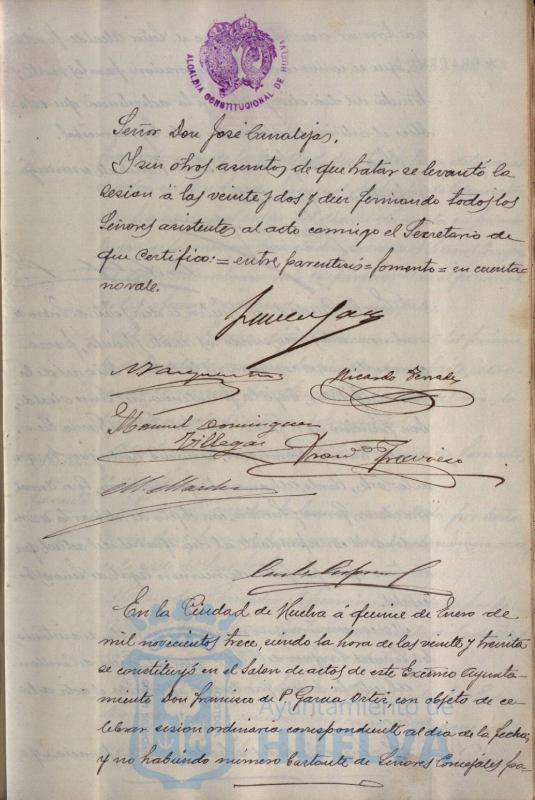 ALCALDIA CONSTITUCIONAL DE HUELVA
Señor Don José Canalejas.
Y sin otros asuntos de que tratar se levantó la
sesion á las veinte y dos y diez firmando todos los
Señores asistentes al acto conmigo el Secretario de
que certifico:= entre parentesis=fomento= en cuenta
no vale.
Ricardo
Manuel Dominguez
Villegas
En la Ciudad de Huelva á quince de Enero de
mil novecientos trece, siendo la hora de las veinte y treinta
se constituyó en el Salon de actos de este Excmo Ayunta-
miento Don Francisco de P. Garcia Ortiz, con objeto de ce-
lebrar sesion ordinaria correspondiente al dia de la fecha;
y no habiendo número bastante de Señores Concejales pa-
Ayuntamiento de
HUELVA